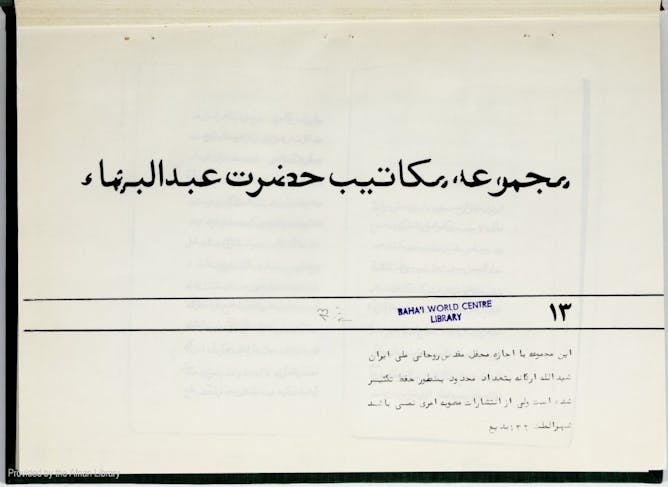 مجموعه مکاتیب حضرت عبدالبهاء
۱۳
BAHA'I WORLD CENTRE
LIBRARY
13
این مجموعه با اجازه محفل مقدس روحانی ملی ایران
شیدالله ارکانه بتعداد محدود بمنظور حفظ تکثیر
شده است ولی از انتشارات مصوبه امری نمی باشد
شهرالعلم ۱۳۲ بدیع
Provided by the Afnan Library